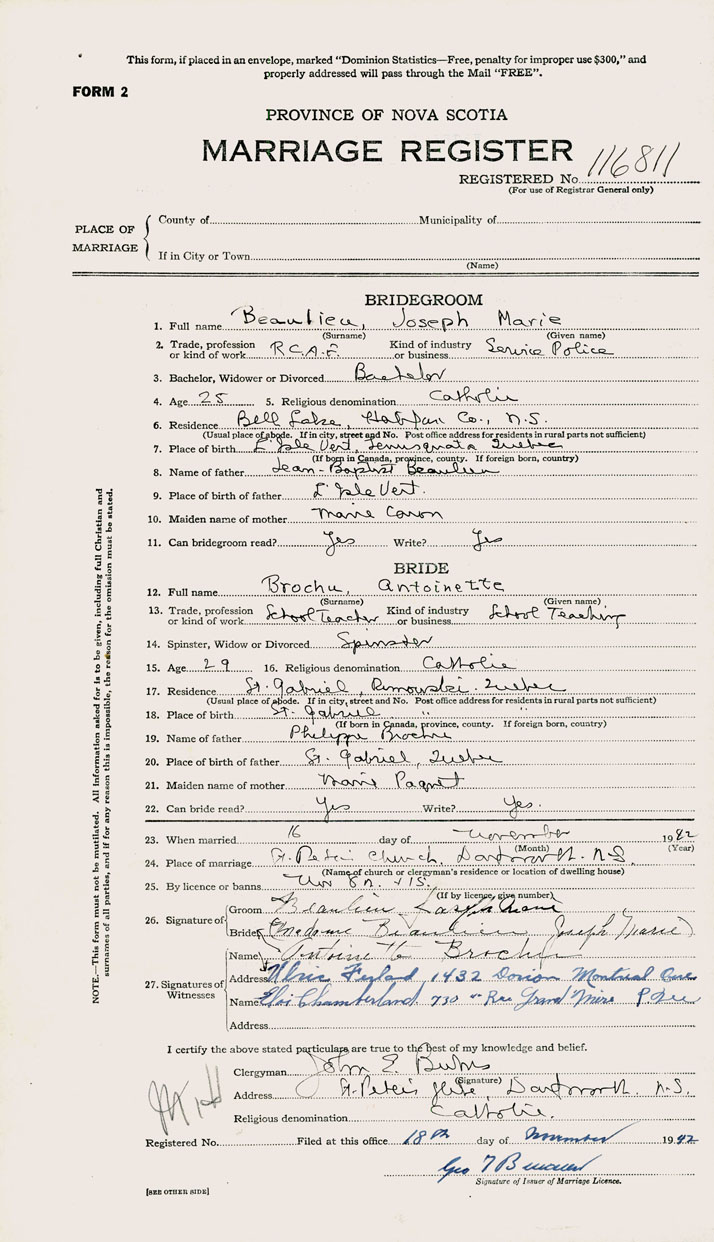 This form, if placed in an envelope, marked "Dominion Statistics—Free, penalty for improper use $300," and
properly addressed will pass through the Mail "FREE".
FORM 2
PROVINCE OF NOVA SCOTIA
MARRIAGE REGISTER
REGISTERED No. 116811
(For use of Registrar General only)
PLACE OF MARRIAGE
County of Municipality of
If in City or Town
(Name)
BRIDEGROOM
1. Full name Beaulieu, Joseph Marie
(Surname) (Given name)
2. Trade, profession or kind of work R.C.A.F. Kind of industry or business Service Police
3. Bachelor, Widower or Divorced Bachelor
4. Age 25 5. Religious denomination Catholic
6. Residence Bell Lake, Co., N.S.
(Usual place of abode. If in city, street and No. Post office address for residents in rural parts not sufficient)
7. Place of birth L'Isle Vert, Quebec
(If born in Canada, province, county. If foreign born, country)
8. Name of father Jean-Baptist Beaulieu
9. Place of birth of father L'Isle Vert.
10. Maiden name of mother Marie Caron
11. Can bridegroom read? Yes Write? Yes
BRIDE
12. Full name Brochu, Antoinette
(Surname) (Given name)
13. Trade, profession or kind of work School Teacher Kind of industry or business School Teaching
14. Spinster, Widow or Divorced Spinster
15. Age 29 16. Religious denomination Catholic
17. Residence St. Gabriel, Rimouski. Quebec
(Usual place of abode. If in city, street and No. Post office address for residents in rural parts not sufficient)
18. Place of birth St. Gabriel " "
(If born in Canada, province, county. If foreign born, country)
19. Name of father Philippe Brochu
20. Place of birth of father St. Gabriel, Quebec
21. Maiden name of mother Marie Paquet
22. Can bride read? Yes Write? Yes.
23. When married 16 day of November 1942
(Month) (Year)
24. Place of marriage St. Peter's Church, Dartmouth. N.S.
(Name of church or clergyman's residence or location of dwelling house)
25. By licence or banns
(If by licence, give number)
26. Signature of
Groom Beaulieu Joseph Marie
Bride (Madame Beaulieu Joseph Marie)
27. Signatures of Witnesses
Name Antoinette Brochu
Address Ulric 1432 Dorion Montreal
Name Eloi Chamberland 730 Grand'Mère P Que
Address
I certify the above stated particulars are true to the best of my knowledge and belief.
Clergyman John E. Burns
(Signature)
Address St. Peter's Dartmouth. N.S.
Religious denomination Catholic.
Registered No. Filed at this office 18th day of November 1942
Geo
Signature of Issuer of Marriage Licence.
[SEE OTHER SIDE]
NOTE.—This form must not be mutilated. All information asked for is to be given, including full Christian and
surnames of all parties, and if for any reason this is impossible, the reason for the omission must be stated.